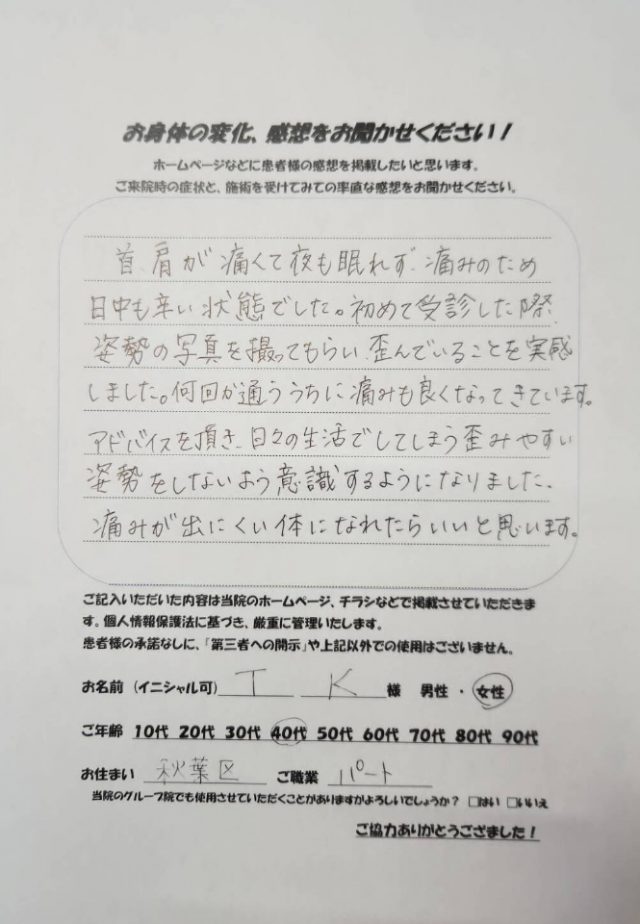 お身体の変化、感想をお聞かせください！
ホームページなどに患者様の感想を掲載したいと思います。
ご来院時の症状と、施術を受けてみての率直な感想をお聞かせください。
首、肩が痛くて夜も眠れず、痛みのため
日中も辛い状態でした。初めて受診した際
姿勢の写真を撮ってもらい、歪んでいることを実感
しました。何回か通ううちに痛みも良くなってきています。
アドバイスを頂き、日々の生活でしてしまう歪みやすい
姿勢をしないよう意識するようになりました。
痛みが出にくい体になれたらいいと思います。
ご記入いただいた内容は当院のホームページ、チラシなどで掲載させていただきま
す。個人情報保護法に基づき、厳重に管理いたします。
患者様の承諾なしに、「第三者への開示」や上記以外での使用はございません。
お名前（イニシャル可） T K 様 男性 ・ 女性
ご年齢 10代 20代 30代 40代 50代 60代 70代 80代 90代
お住まい 秋葉区 ご職業 パート
当院のグループ院でも使用させていただくことがありますがよろしいでしょうか？ □はい □いいえ
ご協力ありがとうござました！